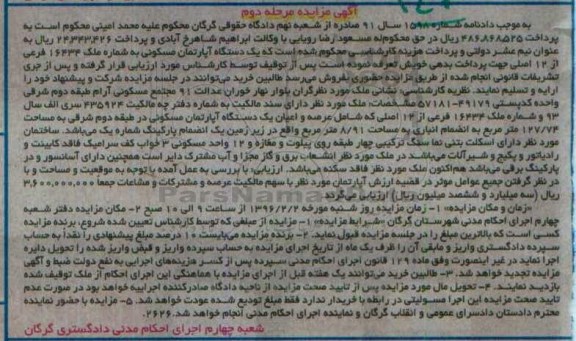 آگهی مزایده مرحله دوم
به موجب دادنامه شماره ۱۵۹۸ سال ۹۱ صادره از شعبه نهم دادگاه حقوقی گرگان محکوم علیه محمد امینی محکوم است به
پرداخت ۴۸۶.۸۶۸.۵۲۵ ریال در حق محکوم‌له مسعود رضا رویایی با وکالت ابراهیم شاهرخ آبادی و پرداخت ۲۴.۳۴۳.۴۲۶ ریال به
عنوان نیم عشر دولتی و پرداخت هزینه کارشناسی محکوم شده است که یک دستگاه آپارتمان مسکونی به شماره ملک ۱۶۴۳۴ فرعی
از ۱۲ اصلی جهت پرداخت بدهی خویش تعرفه نموده است پس از توقیف توسط کارشناس مورد ارزیابی قرار گرفته و پس از جری
تشریفات قانونی انجام شده از طریق مزایده حضوری بفروش می‌رسد طالبین خرید می‌توانند در جلسه مزایده شرکت و پیشنهاد خود را
ارایه و تسلیم نمایند. نظریه کارشناسی: نشانی ملک مورد نظر گرگان بلوار نهار خوران عدالت ۹۱ مجتمع مسکونی آرام طبقه دوم شرقی
واحد کدپستی ۴۹۱۷۹-۵۷۱۸۱ مشخصات: ملک مورد نظر دارای سند مالکیت به شماره دفتر چه مالکیت ۴۳۵۹۲۴ سری الف سال
۹۳ و شماره ملک ۱۶۴۳۴ فرعی از ۱۲ اصلی که شامل عرصه و اعیان یک دستگاه آپارتمان مسکونی در طبقه دوم شرقی به مساحت
۱۲۷/۷۴ متر مربع به انضمام انباری به مساحت ۸/۹۱ متر مربع واقع در زیر زمین یک انضمام پارکینگ شماره یک می‌باشد. ساختمان
مورد نظر دارای اسکلت بتنی نما سنگ ترکیبی چهار طبقه روی پیلوت و مغازه و ۱۲ واحد مسکونی ۳ خواب کف سرامیک فاقد کابینت و
رادیاتور و پکیج و شیرآلات می‌باشد در ملک مورد نظر انشعاب برق و گاز مجزا و آب مشترک دایر است همچنین دارای آسانسور و در
پارکینگ برقی می‌باشد هم‌اکنون ملک مورد نظر فاقد سکنه می‌باشد. ارزیابی: با بررسی به عمل آمده با توجه به موقعیت و مساحت و با
در نظر گرفتن جمیع عوامل موثر در قضیه ارزش آپارتمان مورد نظر با سهم مالکیت عرصه و مشترکات و مشاعات جمعا ۳.۶۰۰.۰۰۰.۰۰۰
ریال (سه میلیارد و ششصد میلیون ریال) ارزیابی می‌گردد.
«زمان و مکان مزایده» ۱- زمان مزایده روز شنبه مورخه ۱۳۹۶/۲/۲ از ساعت ۹ الی ۱۰ صبح ۲- مکان مزایده دفتر شعبه
چهارم اجرای احکام مدنی شهرستان گرگان «شرایط مزایده» ۱- مزایده از مبلغی که توسط کارشناس تعیین شده شروع، برنده مزایده
کسی است که بالاترین مبلغ را در جلسه مزایده قبول نماید. ۲- برنده مزایده می‌بایست ۱۰ درصد مبلغ پیشنهادی را نقدا به حساب
سپرده دادگستری واریز و مابقی آن را ظرف یک ماه از تاریخ اجرای مزایده به حساب سپرده واریز و قبض واریز شده را تحویل دایره
اجرا نماید در غیر اینصورت وفق ماده ۱۲۹ قانون اجرای احکام مدنی سپرده پس از کسر هزینه‌های اجرایی به نفع دولت ضبط و آگهی
مزایده تجدید خواهد شد. ۳- طالبین خرید می‌توانند یک هفته قبل از اجرای مزایده با هماهنگی این اجرای احکام از ملک توقیف شده
بازدید نمایند. ۴- تحویل مال مورد مزایده پس از تایید صحت مزایده از ناحیه دادگاه صادرکننده اجراییه خواهد بود در صورت عدم
تایید صحت مزایده این اجرا مسولیتی در رابطه با خریدار ندارد فقط مبلغ تودیع شده عودت خواهد شد. ۵- مزایده با حضور نماینده
محترم دادستان دادسرای عمومی و انقلاب گرگان و نماینده اجرای احکام مدنی انجام خواهد شد. ۲۶۲۶
شعبه چهارم اجرای احکام مدنی دادگستری گرگان